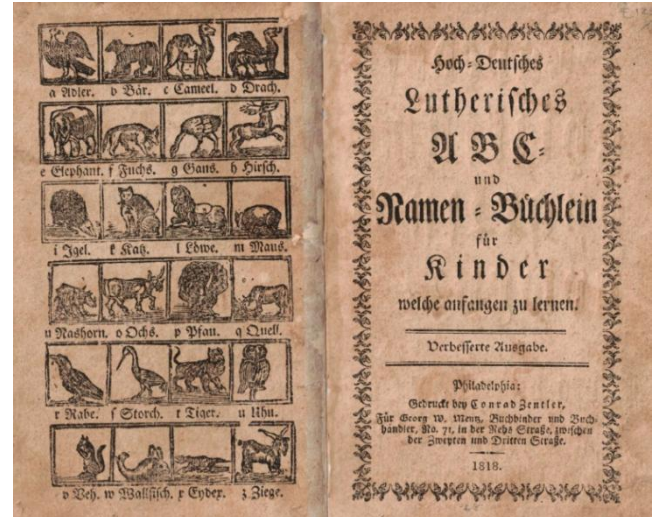 a Adler. b Bär. c Cameel. d Drach.
e Elephant. f Fuchs. g Gans. h Hirsch.
i Igel. k Katz. l Löwe. m Maus.
n Nashorn. o Ochs. p Pfau. q Quell.
r Rabe. s Storch. t Tiger. u Uhu.
v Veh. w Wallfisch. x Eydex. z Ziege.
Hoch-Deutsches
Lutherisches
A B C-
und
Namen-Büchlein
für
Kinder
welche anfangen zu lernen.
Verbesserte Ausgabe.
Philadelphia:
Gedruckt bey Conrad Zentler,
Für Georg W. Mentz, Buchbinder und Buch-
händler, No. 71, in der Rehs Straße, zwischen
der Zweyten und Dritten Straße.
1818.